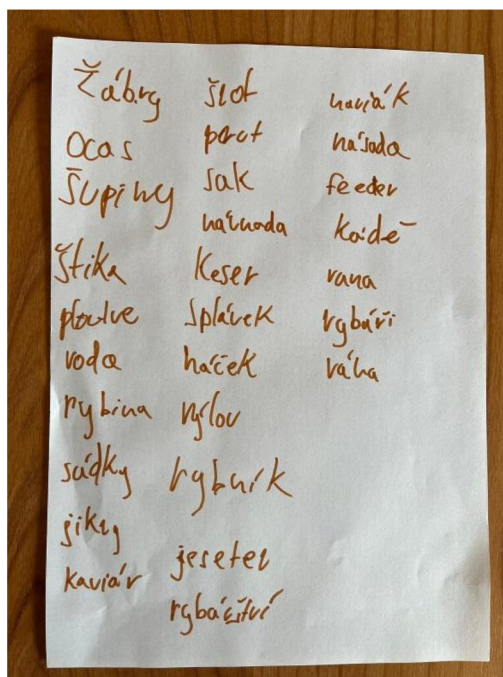 Žábry
ocas
Šupiny
štika
ploutve
voda
rybina
sádky
jikry
kaviár
šlot
prut
sak
návnada
Keser
splávek
háček
výlov
rybník
jeseter
rybářství
naviják
násada
feeder
kádě
vana
rybáři
váha